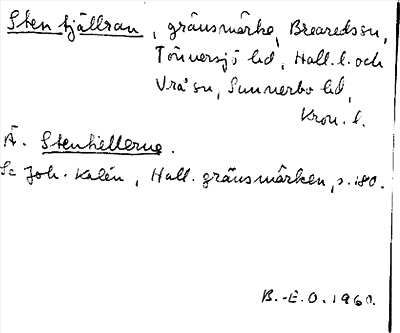 Sten tjällran, gränsmärke, Breareds sn,
Tönnersjö hd, Hall. l. och
Vrå sn, Sunnerbo hd,
Kron. l.
Ä. Stenhellerne.
Se Joh. Kalén, Hall. gränsmärken, s. 180.
B.-E.O. 1960.